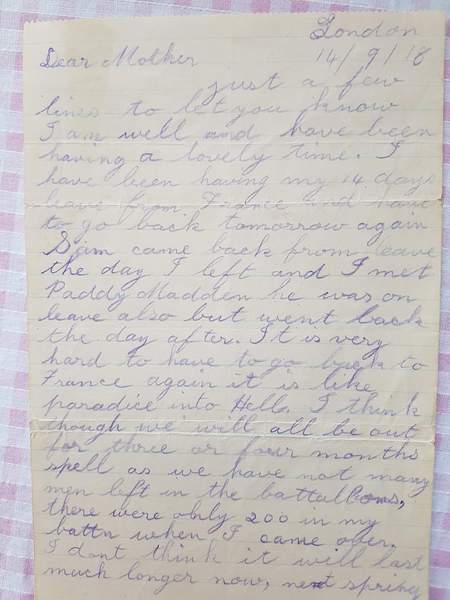 London
14/9/18
Dear Mother
just a few
lines to let you know
I am well and have been
having a lovely time. I
have been having my 14 days
leave from France and have
to go back tomorrow again
Sjim came back from leave
the day I left and I met
Paddy Madden he was on
leave also but went back
the day after. It is very
hard to have to go back to
France again it is like
paradice into Hell. I think
though we will all be out
for three or four months
spell as we have not many
men left in the battalions,
there were only 200 in my
battn when I came over.
I dont think it will last
much longer now, next spring